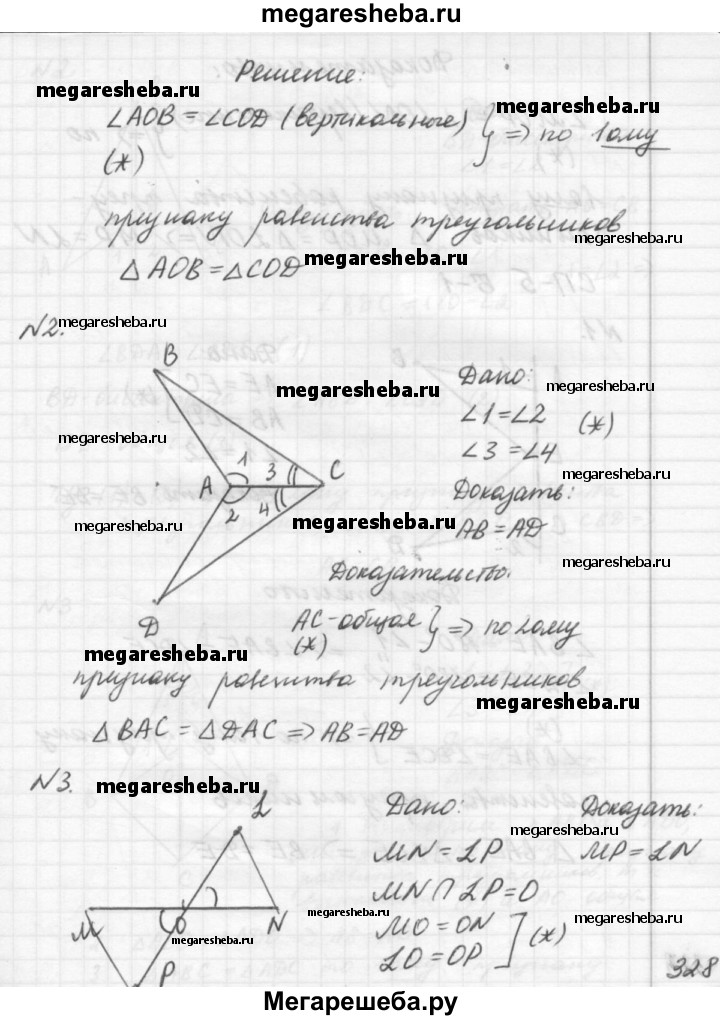 megaresheba.ru
Решение:
megaresheba.ru
∠AOB = ∠COD (вертикальные) } => по 1ому
megaresheba.ru
(*)
признаку равенства треугольников
megaresheba.ru
△AOB = △COD
megaresheba.ru
N2.
megaresheba.ru
B
Дано:
megaresheba.ru
megaresheba.ru
∠1 = ∠2
(*)
∠3 = ∠4
megaresheba.ru
1
3
C
A
2
4
megaresheba.ru
Доказать:
megaresheba.ru
megaresheba.ru
AB = AD
Доказательство.
megaresheba.ru
D
AC - общая } => по 2ому
(*)
megaresheba.ru
признаку равенства треугольников
megaresheba.ru
△BAC = △DAC => AB = AD
N3.
megaresheba.ru
L
Дано:
Доказать:
megaresheba.ru
MN = LP
MP = LN
MN ∩ LP = O
M
O
N
megaresheba.ru
megaresheba.ru
MO = ON
] (*)
megaresheba.ru
LO = OP
P
328
Мегарешеба.ру